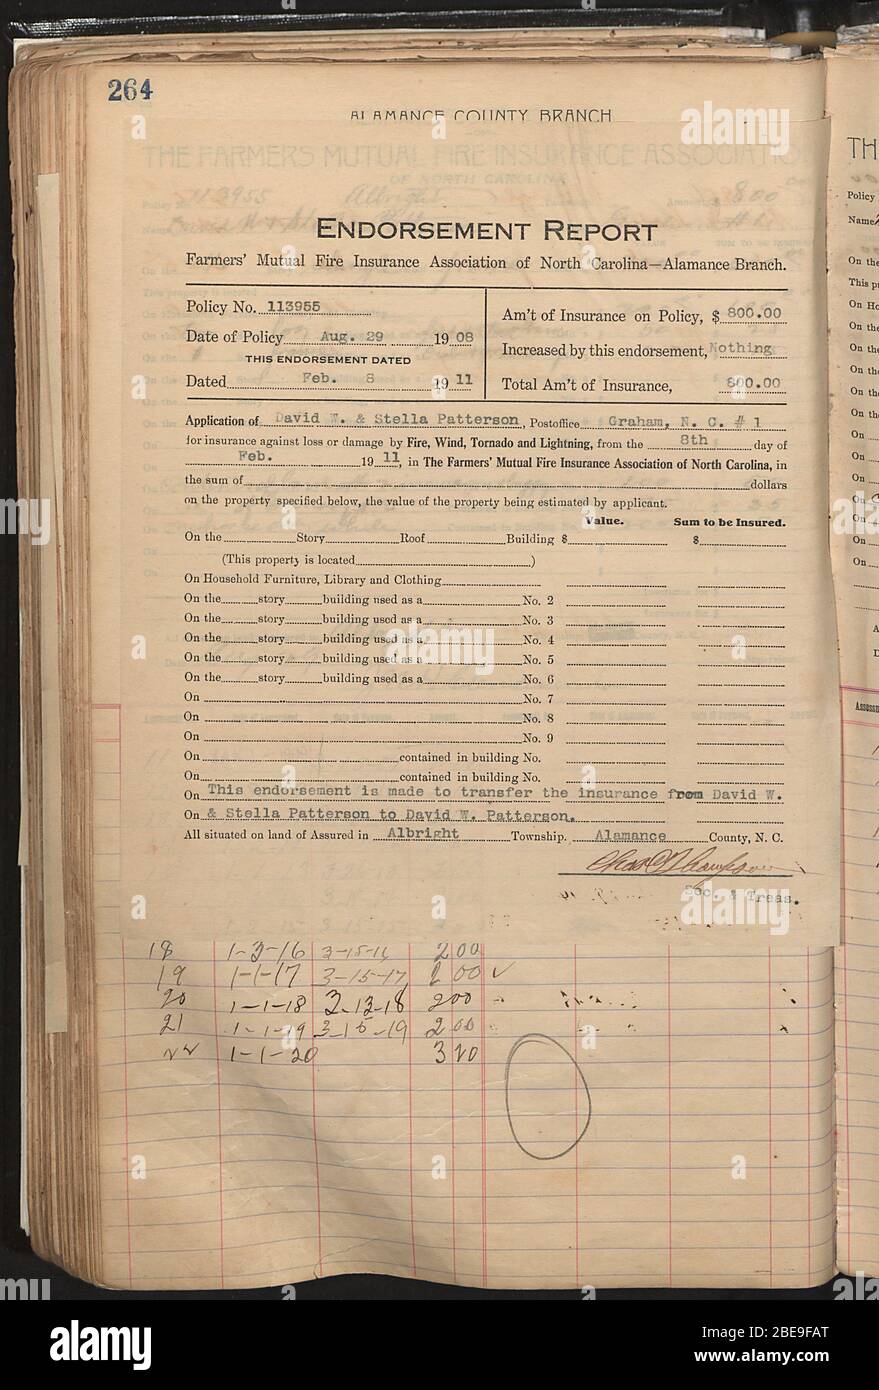 264
ALAMANCE COUNTY BRANCH
THE FARMERS MUTUAL FIRE INSURANCE ASSOCIATION
OF NORTH CAROLINA
113955 Albright 800
ENDORSEMENT REPORT
Farmers' Mutual Fire Insurance Association of North Carolina—Alamance Branch.
Policy No. 113955
Date of Policy Aug. 29 1908
THIS ENDORSEMENT DATED
Dated Feb. 8 1911
Am't of Insurance on Policy, $ 800.00
Increased by this endorsement, Nothing
Total Am't of Insurance, 800.00
Application of David W. & Stella Patterson, Postoffice Graham, N. C. # 1
for insurance against loss or damage by Fire, Wind, Tornado and Lightning, from the 8th day of
Feb. 1911, in The Farmers' Mutual Fire Insurance Association of North Carolina, in
the sum of dollars
on the property specified below, the value of the property being estimated by applicant.
Value. Sum to be Insured.
On the Story Roof Building $ $
(This property is located )
On Household Furniture, Library and Clothing
On the story building used as a No. 2
On the story building used as a No. 3
On the story building used as a No. 4
On the story building used as a No. 5
On the story building used as a No. 6
On No. 7
On No. 8
On No. 9
On contained in building No.
On contained in building No.
On This endorsement is made to transfer the insurance from David W.
On & Stella Patterson to David W. Patterson.
All situated on land of Assured in Albright Township. Alamance County, N. C.
Sec. & Treas.
18 1-3-16 3-15-16 2 00
19 1-1-17 3-15-17 2 00 ✓
20 1-1-18 3-13-18 2 00
21 1-1-19 3-15-19 2 00
22 1-1-20 3 20
TH
Policy
Name
On the
This pr
On Ho
On the
On the
On the
On the
On the
On
On
On
On
On
On
On
Assessm
alamy
alamy
Image ID: 2BE9FAT
www.alamy.com